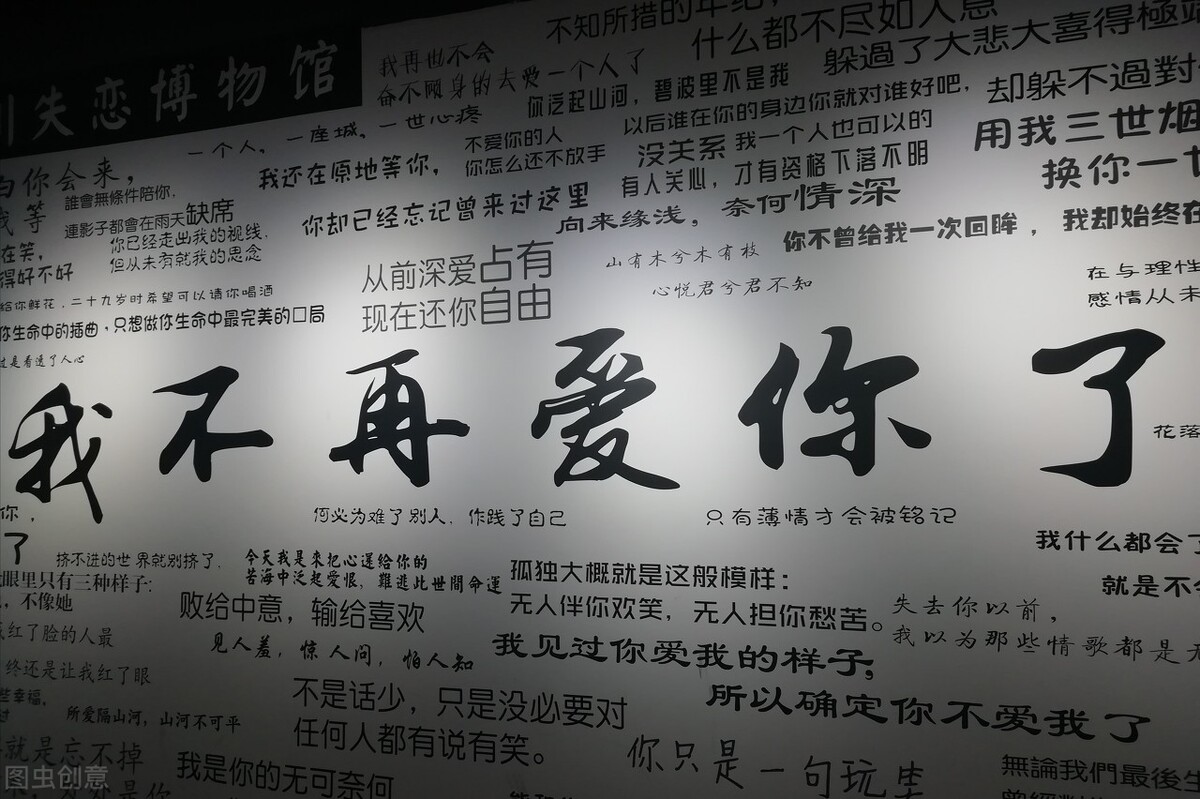 失恋博物馆
我再也不会
奋不顾身的去爱一个人了
不知所措的年纪，
什么都不尽如人意
躲過了大悲大喜得極
却躲不過對
你泛起山河，碧波里不是我
以后谁在你的身边你就对谁好吧，
一个人，一座城，一世心疼
不爱你的人
你怎么还不放手
没关系 我一个人也可以的
有人关心，才有资格下落不明
用我三世烟
换你一世
我还在原地等你，
你却已经忘记曾来过这里
向来缘浅，奈何情深
你会来，
我等
誰會無條件陪你，
連影子都會在雨天缺席
你已经走出我的视线，
但从未有就我的思念
你不曾给我一次回眸，我却始终在
山有木兮木有枝
心悦君兮君不知
从前深爱占有
现在还你自由
在与理性
感情从未
在笑，
得好不好
给你鲜花，二十九岁时希望可以请你喝酒
你生命中的插曲，只想做你生命中最完美的口局
过是看透了人心
我不再爱你了
花落
你，
了
何必为难了别人，作践了自己
只有薄情才会被铭记
挤不进的世界就别挤了，
今天我是來把心送给你的
苦海中泛起愛恨，難逃此世間命運
我什么都会了
就是不
眼里只有三种样子：
，不像她
红了脸的人最
终还是让我红了眼
败给中意，输给喜欢
见人羞，惊人问，怕人知
孤独大概就是这般模样：
无人伴你欢笑，无人担你愁苦。
失去你以前，
我以为那些情歌都是无
我见过你爱我的样子，
所以确定你不爱我了
些幸福，
所爱隔山河，山河不可平
不是话少，只是没必要对
任何人都有说有笑。
就是忘不掉
我是你的无可奈何
你只是一句玩笑
無論我們最後生
图虫创意